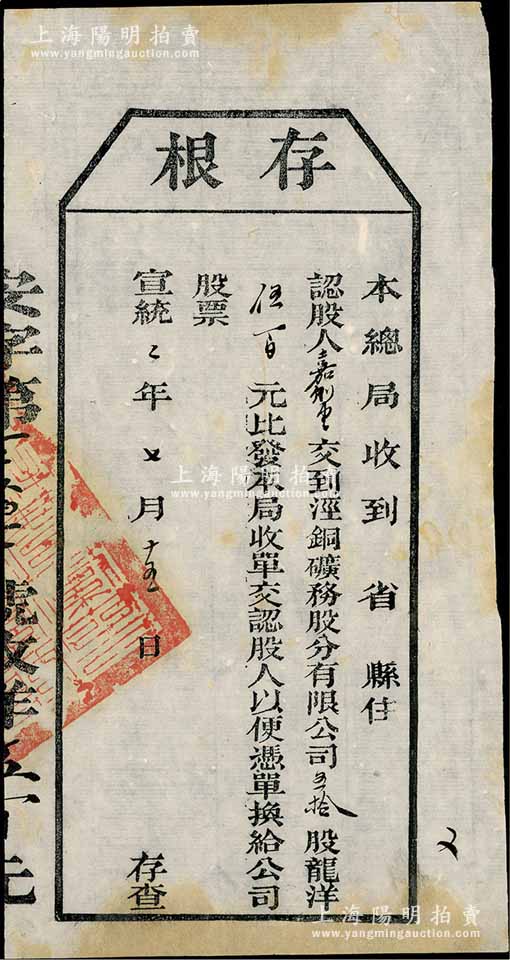 上海陽明拍賣
www.yangmingauction.com
存根
本總局收到 省 縣住
認股人嘉 交到涇銅礦務股分有限公司五拾股龍洋
伍百元比發本局收單交認股人以便憑單換給公司
股票
宣統二年七月十五日 存查
安字第 號收洋伍百元
上海陽明拍賣
www.yangmingauction.com
上海陽明拍賣
www.yangmingauction.com